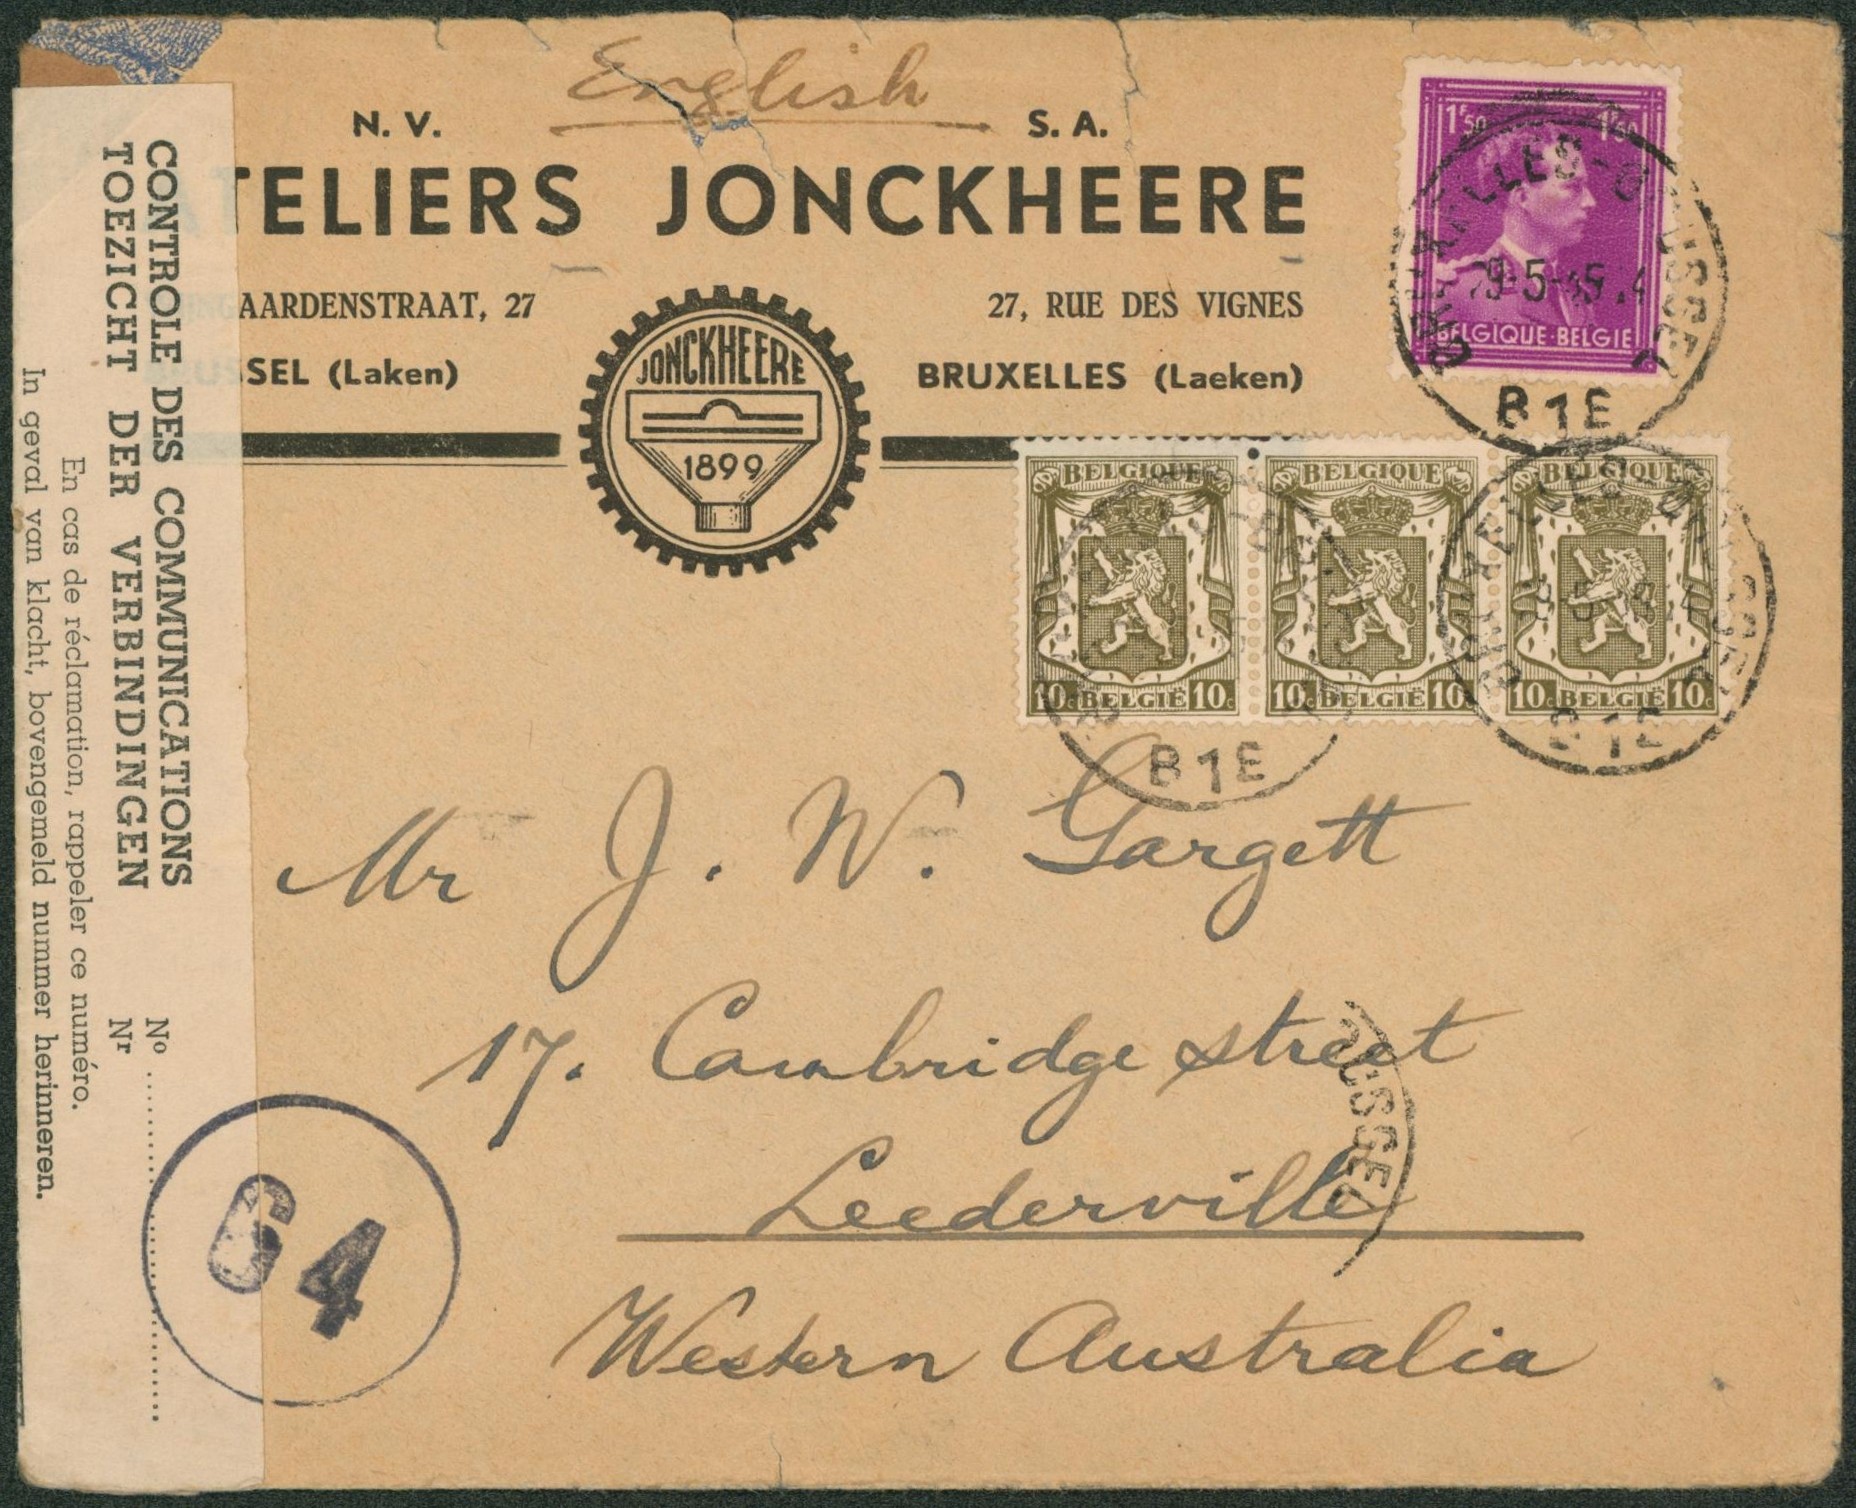 English
N. V. S. A.
ATELIERS JONCKHEERE
AARDENSTRAAT, 27
27, RUE DES VIGNES
BRUSSEL (Laken)
BRUXELLES (Laeken)
JONCKHEERE
1899
1F50 1F50
BELGIQUE-BELGIE
BRUXELLES-BRUSSEL
29-5-45
B1E
BELGIQUE
10c BELGIË 10c
BELGIQUE
10c BELGIË 10c
BELGIQUE
10c BELGIË 10c
B1E
Mr J. W. Gargett
17. Cambridge street
Leederville
Western Australia
USSEL
CONTROLE DES COMMUNICATIONS No
TOEZICHT DER VERBINDINGEN Nr
En cas de réclamation, rappeler ce numéro.
In geval van klacht, bovengemeld nummer herinneren.
G4